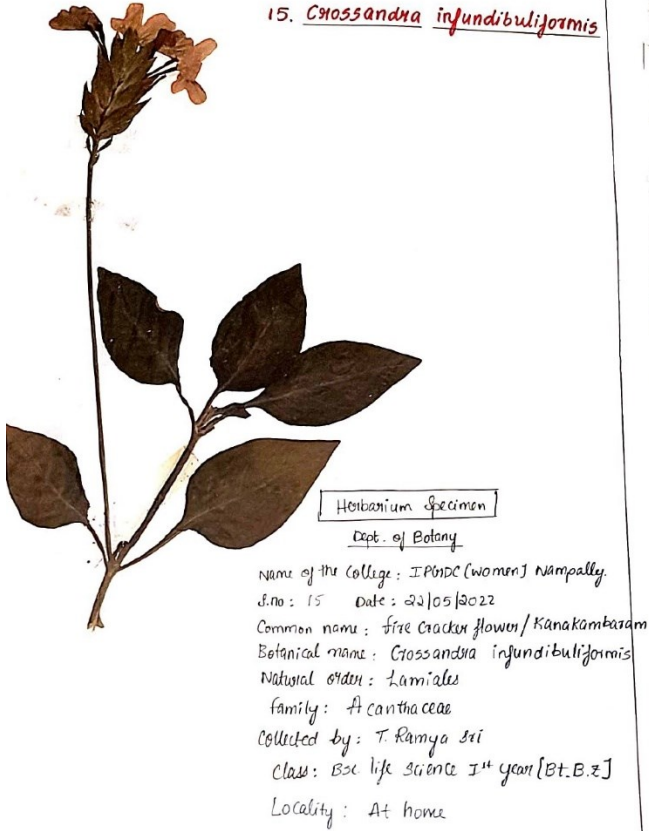 15. Crossandra infundibuliformis
Herbarium Specimen
Dept. of Botany
Name of the College: IPGDC [women] Nampally.
S.no: 15 Date: 22/05/2022
Common name: fire cracker flower/Kanakambaram
Botanical name: Crossandra infundibuliformis
Natural order: Lamiales
family: Acanthaceae
Collected by: T. Ramya Sri
Class: BSc life Science Ist year [Bt.B.Z]
Locality: At home